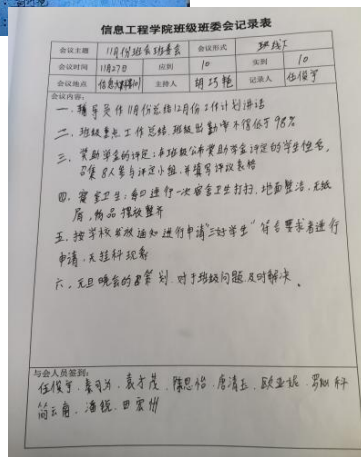 信息工程学院班级班委会记录表
会议主题 11月份班会班委会 会议形式 线下
会议时间 11月27日 应到 10 实到 10
会议地点 主持人 胡巧艳 记录人 任保宇
会议内容:
一、辅导员作11月份总结12月份工作计划讲话
二、班级重点工作总结,班级出勤率不得低于98%
三、奖助学金的评定:本班级公布奖助学金评定的学生姓名,
召集8人参与评定小组,并填写评议表格
四、寝室卫生:每日进行一次寝室卫生打扫,地面整洁,无纸
屑,物品摆放整齐
五、按学校发放通知进行申请“三好学生”符合要求者进行
申请,无挂科现象
六、元旦晚会的策划,对于班级问题及时解决。
与会人员签到:
任保宇、陈思怡、唐清五、欧亚妮、罗
简云角、潘锐、田宏州